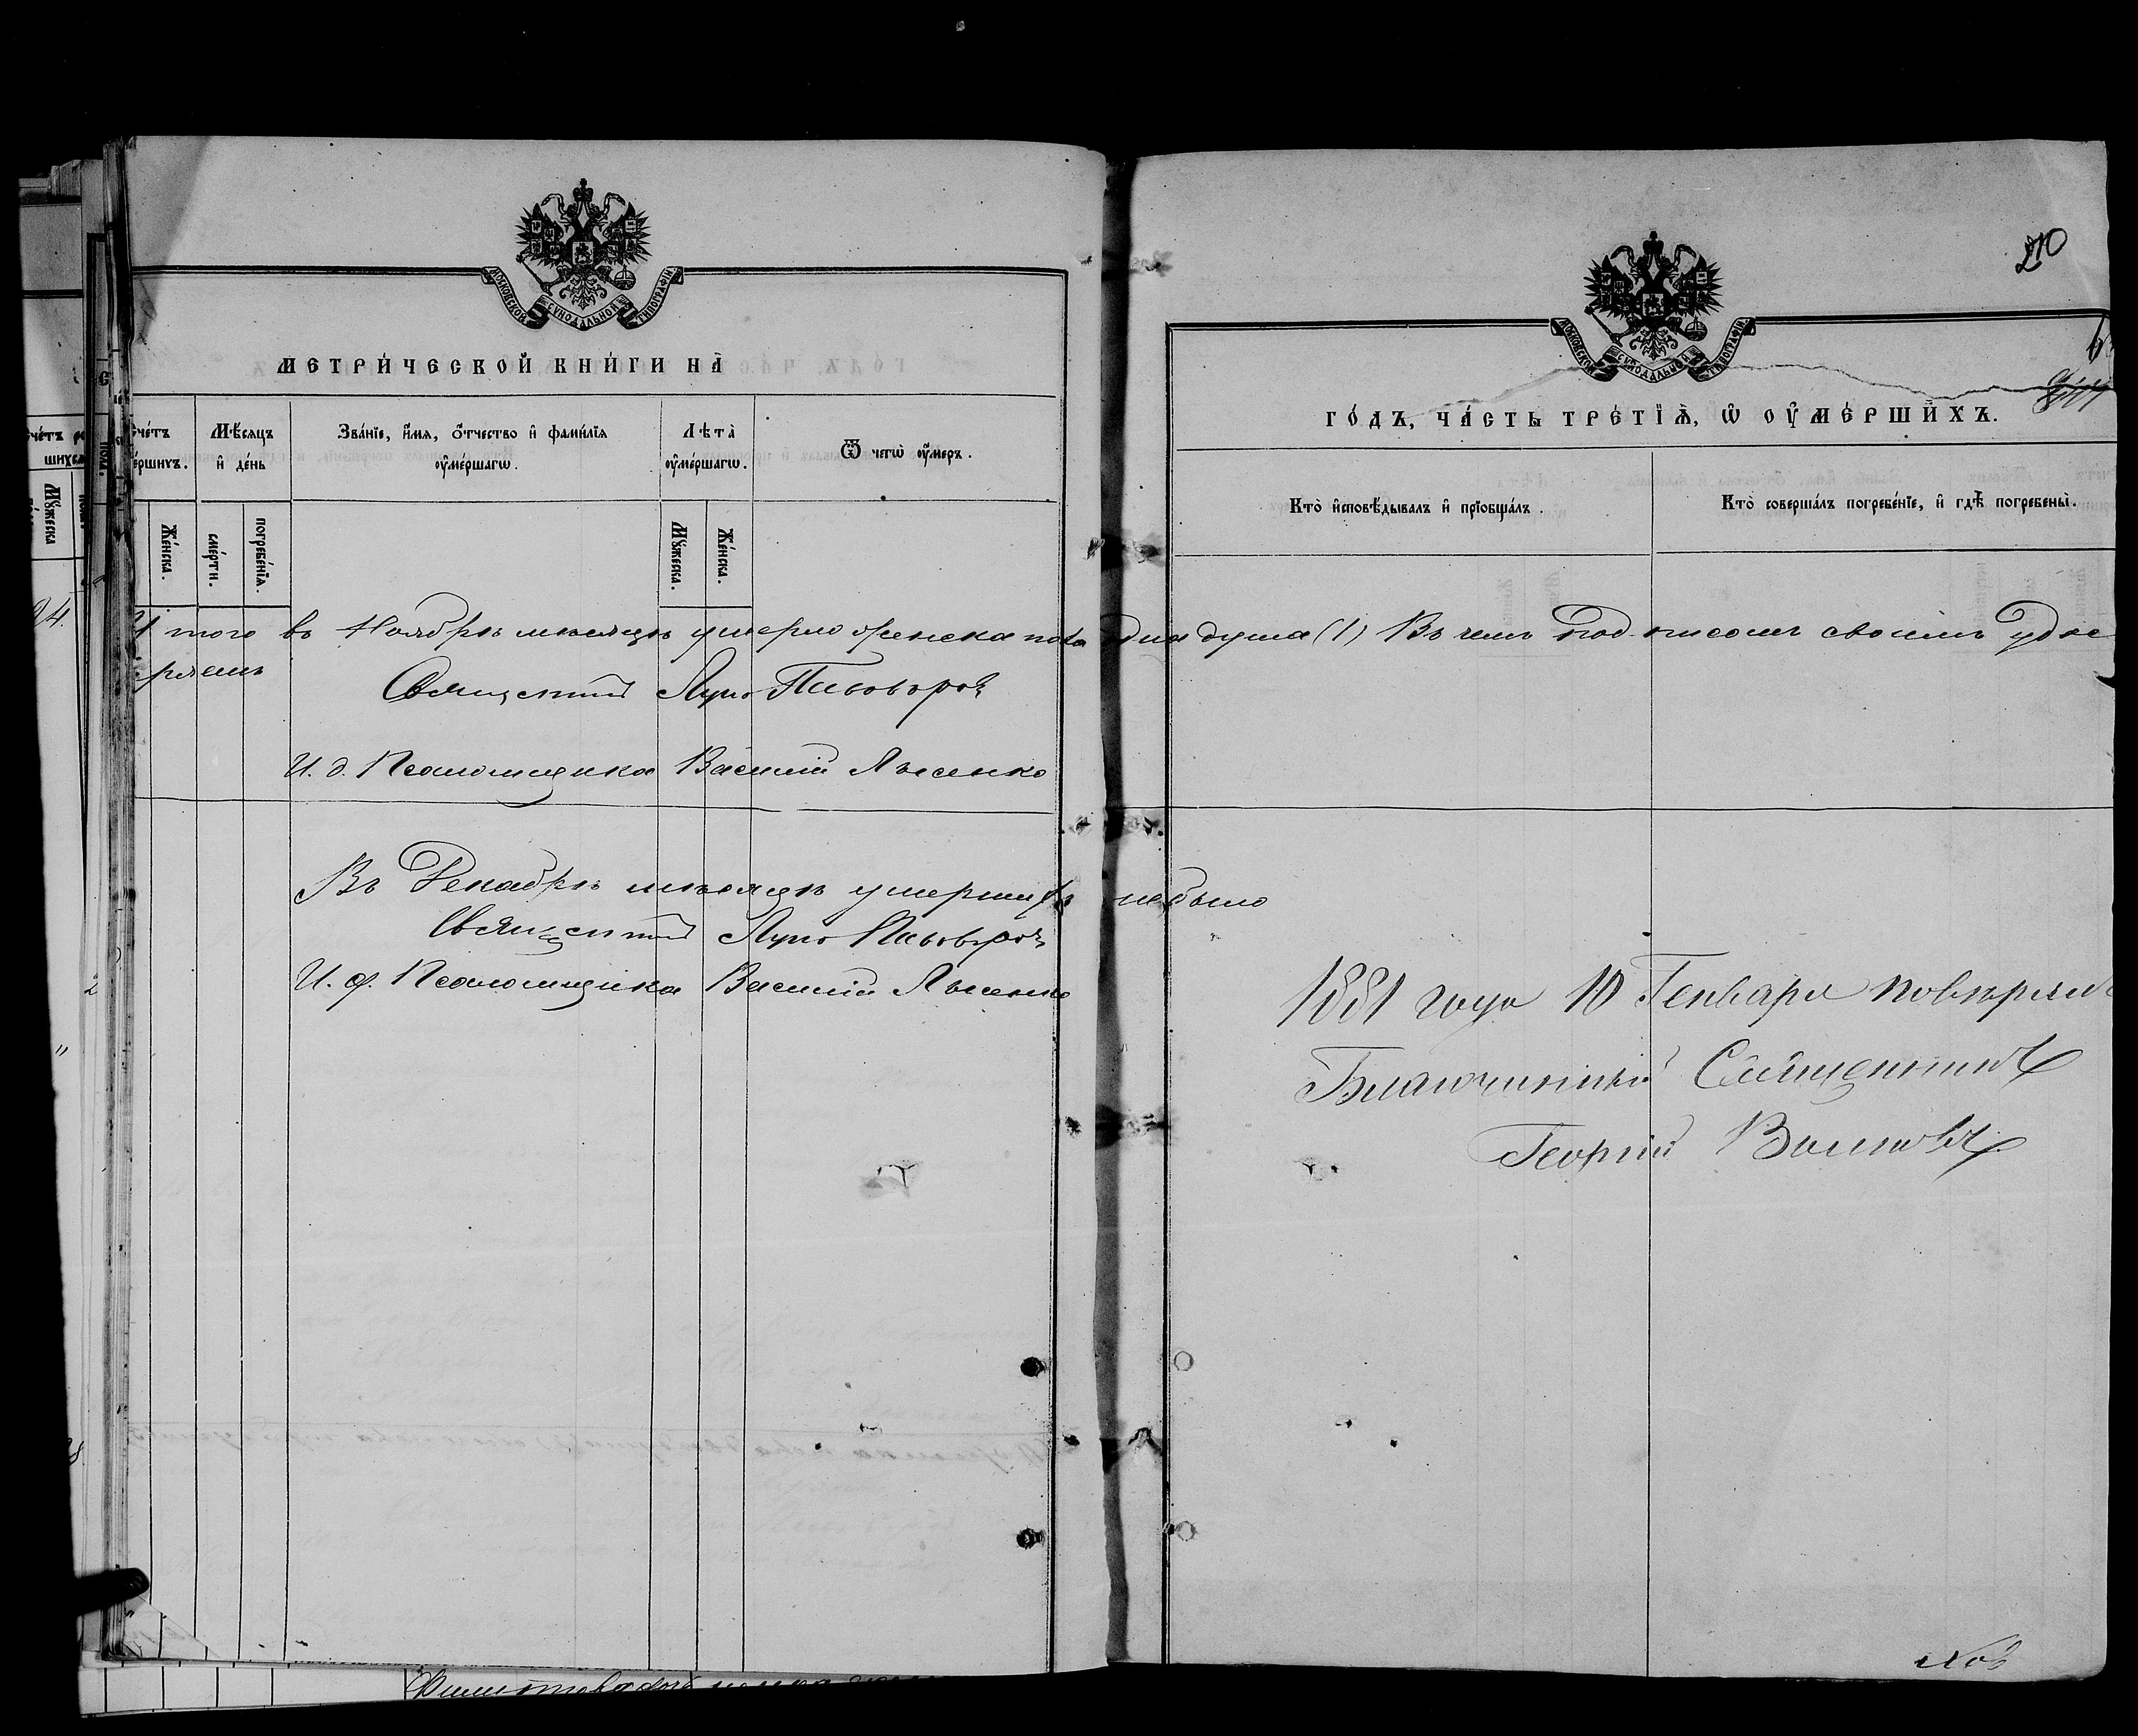 МОСКОВСКОЙ СѴНОДАЛЬНОЙ ТИПОГРАФІИ
МЕТРИ́ЧЕСКОЙ КНИ́ГИ НА̀
Мѣ́сяцъ и҆ де́нь
Зва́нїе, и҆́мѧ, ѻ҆́тчество и҆ фами́лїѧ ᲂу҆ме́ршагѡ.
Лѣта̀ ᲂу҆ме́ршагѡ.
Ѿ чегѡ̀ ᲂу҆́меръ.
Же́нска.
сме́рти.
погребе́нїѧ.
Мꙋ́жеска.
Же́нска.
Итого въ Ноябрѣ мѣсяцѣ умерло женска пола одна душа (1) Въ чемъ подписомъ своимъ удос
ряемъ
Священникъ Лука Пивоваровъ
И. д. Псаломщика Василій Лысенко
Въ Декабрѣ мѣсяцѣ умершихъ небыло
Священникъ Лука Пивоваровъ
И. д. Псаломщика Василій Лысенко
210
МОСКОВСКОЙ СѴНОДАЛЬНОЙ ТИПОГРАФІИ
ГО́ДЪ, ЧА́СТЬ ТРЕ́ТЇѦ, Ѡ ОУ҆МЕ́РШИХЪ.
Кто̀ и҆сповѣ́дывалъ и҆ прїѡбща́лъ.
Кто̀ соверша́лъ погребе́нїе, и҆ гдѣ̀ погребены̀.
1881 года 10 Генваря повѣрялъ
Благочинный Священникъ
Георгій Волковъ